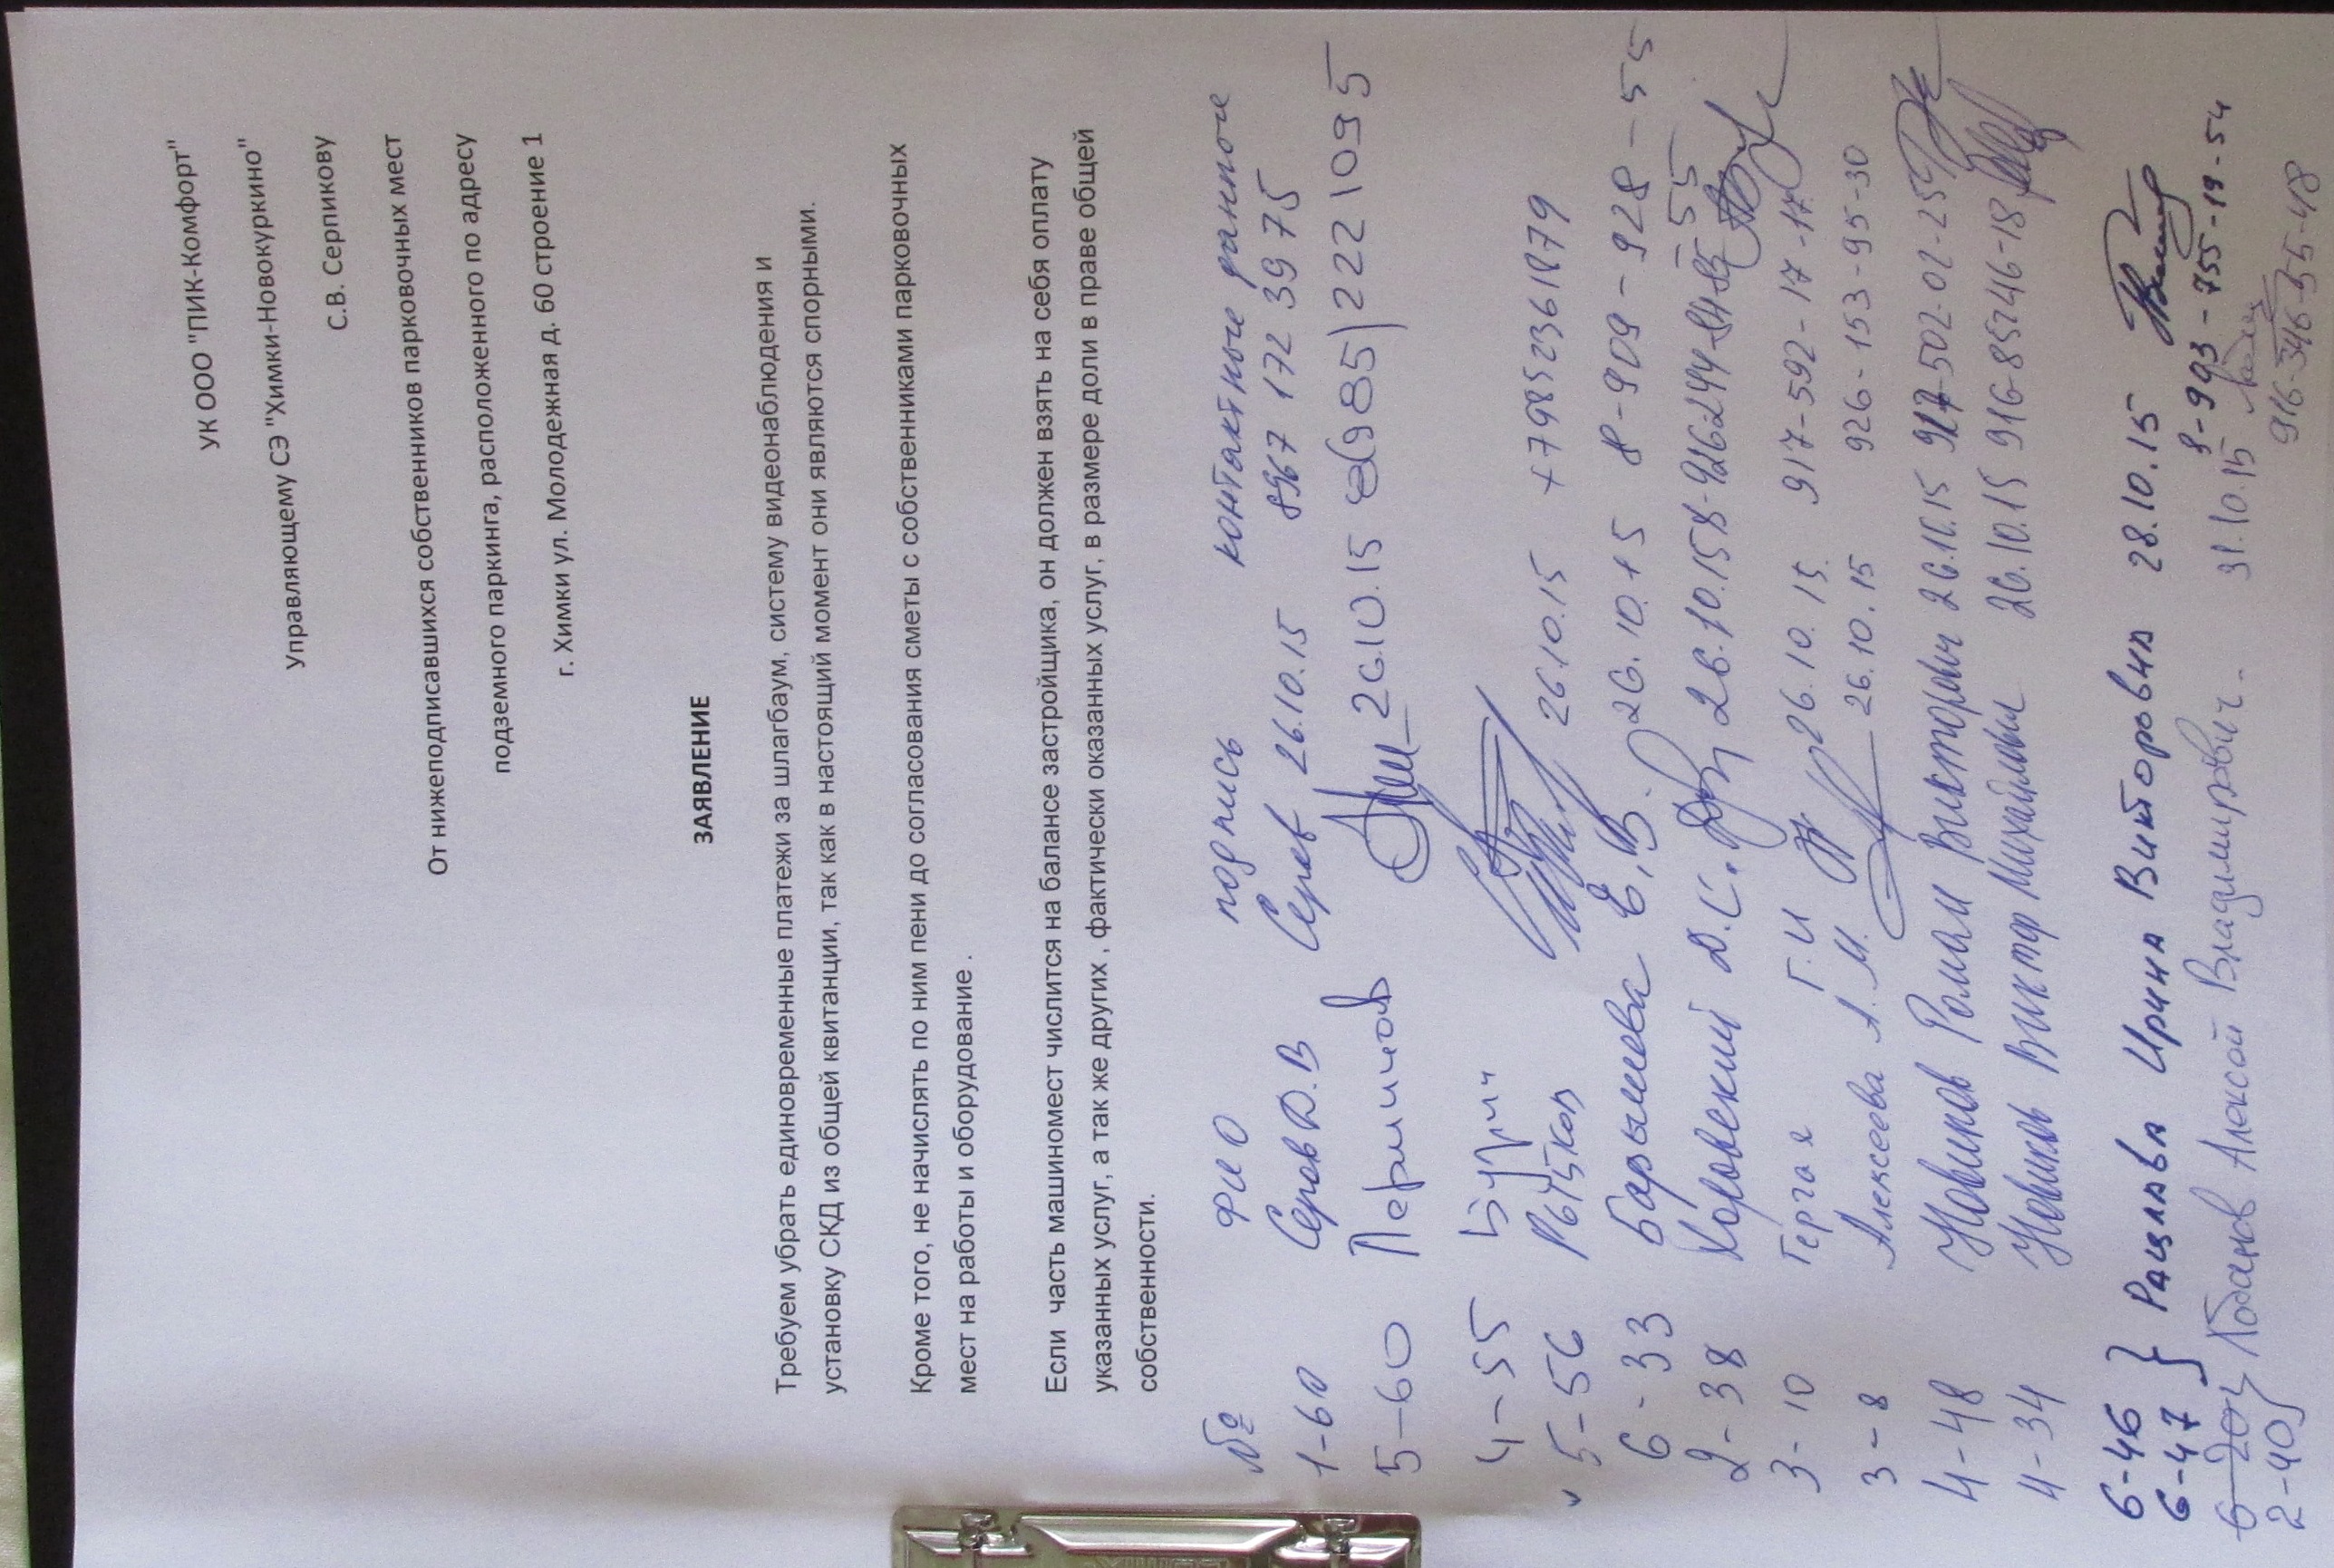 УК ООО "ПИК-Комфорт"
Управляющему СЭ "Химки-Новокуркино"
С.В. Серпикову
От нижеподписавшихся собственников парковочных мест
подземного паркинга, расположенного по адресу
г. Химки ул. Молодежная д. 60 строение 1
ЗАЯВЛЕНИЕ
Требуем убрать единовременные платежи за шлагбаум, систему видеонаблюдения и
установку СКД из общей квитанции, так как в настоящий момент они являются спорными.
Кроме того, не начислять по ним пени до согласования сметы с собственниками парковочных
мест на работы и оборудование .
Если часть машиномест числится на балансе застройщика, он должен взять на себя оплату
указанных услуг, а так же других , фактически оказанных услуг, в размере доли в праве общей
собственности.
№ ФИО подпись контактные данные
1-60 Серов Д.В Серов 26.10.15 8967 172 39 75
5-60 Перминов 26.10.15 8(985)2221095
4-55
5-56 26.10.15 +79852361879
6-33 Е.В. 26.10.15 8-909-928-55
55
2-38 Д.С. 26.10.15
3-10 Г.И 26.10.15. 917-592-17-17
3-8 Алексеева А.М. 26.10.15 926-153-95-30
4-48 Новиков Роман Викторович 26.10.15 502-02-25
4-34 Новиков Виктор Михайлович 26.10.15 916-85746-18
6-46 Рацлава Ирина Викторовна 28.10.15
6-47 8-993-755-19-54
Алексей Владимирович 31.10.15
2-40 916-346-55-48